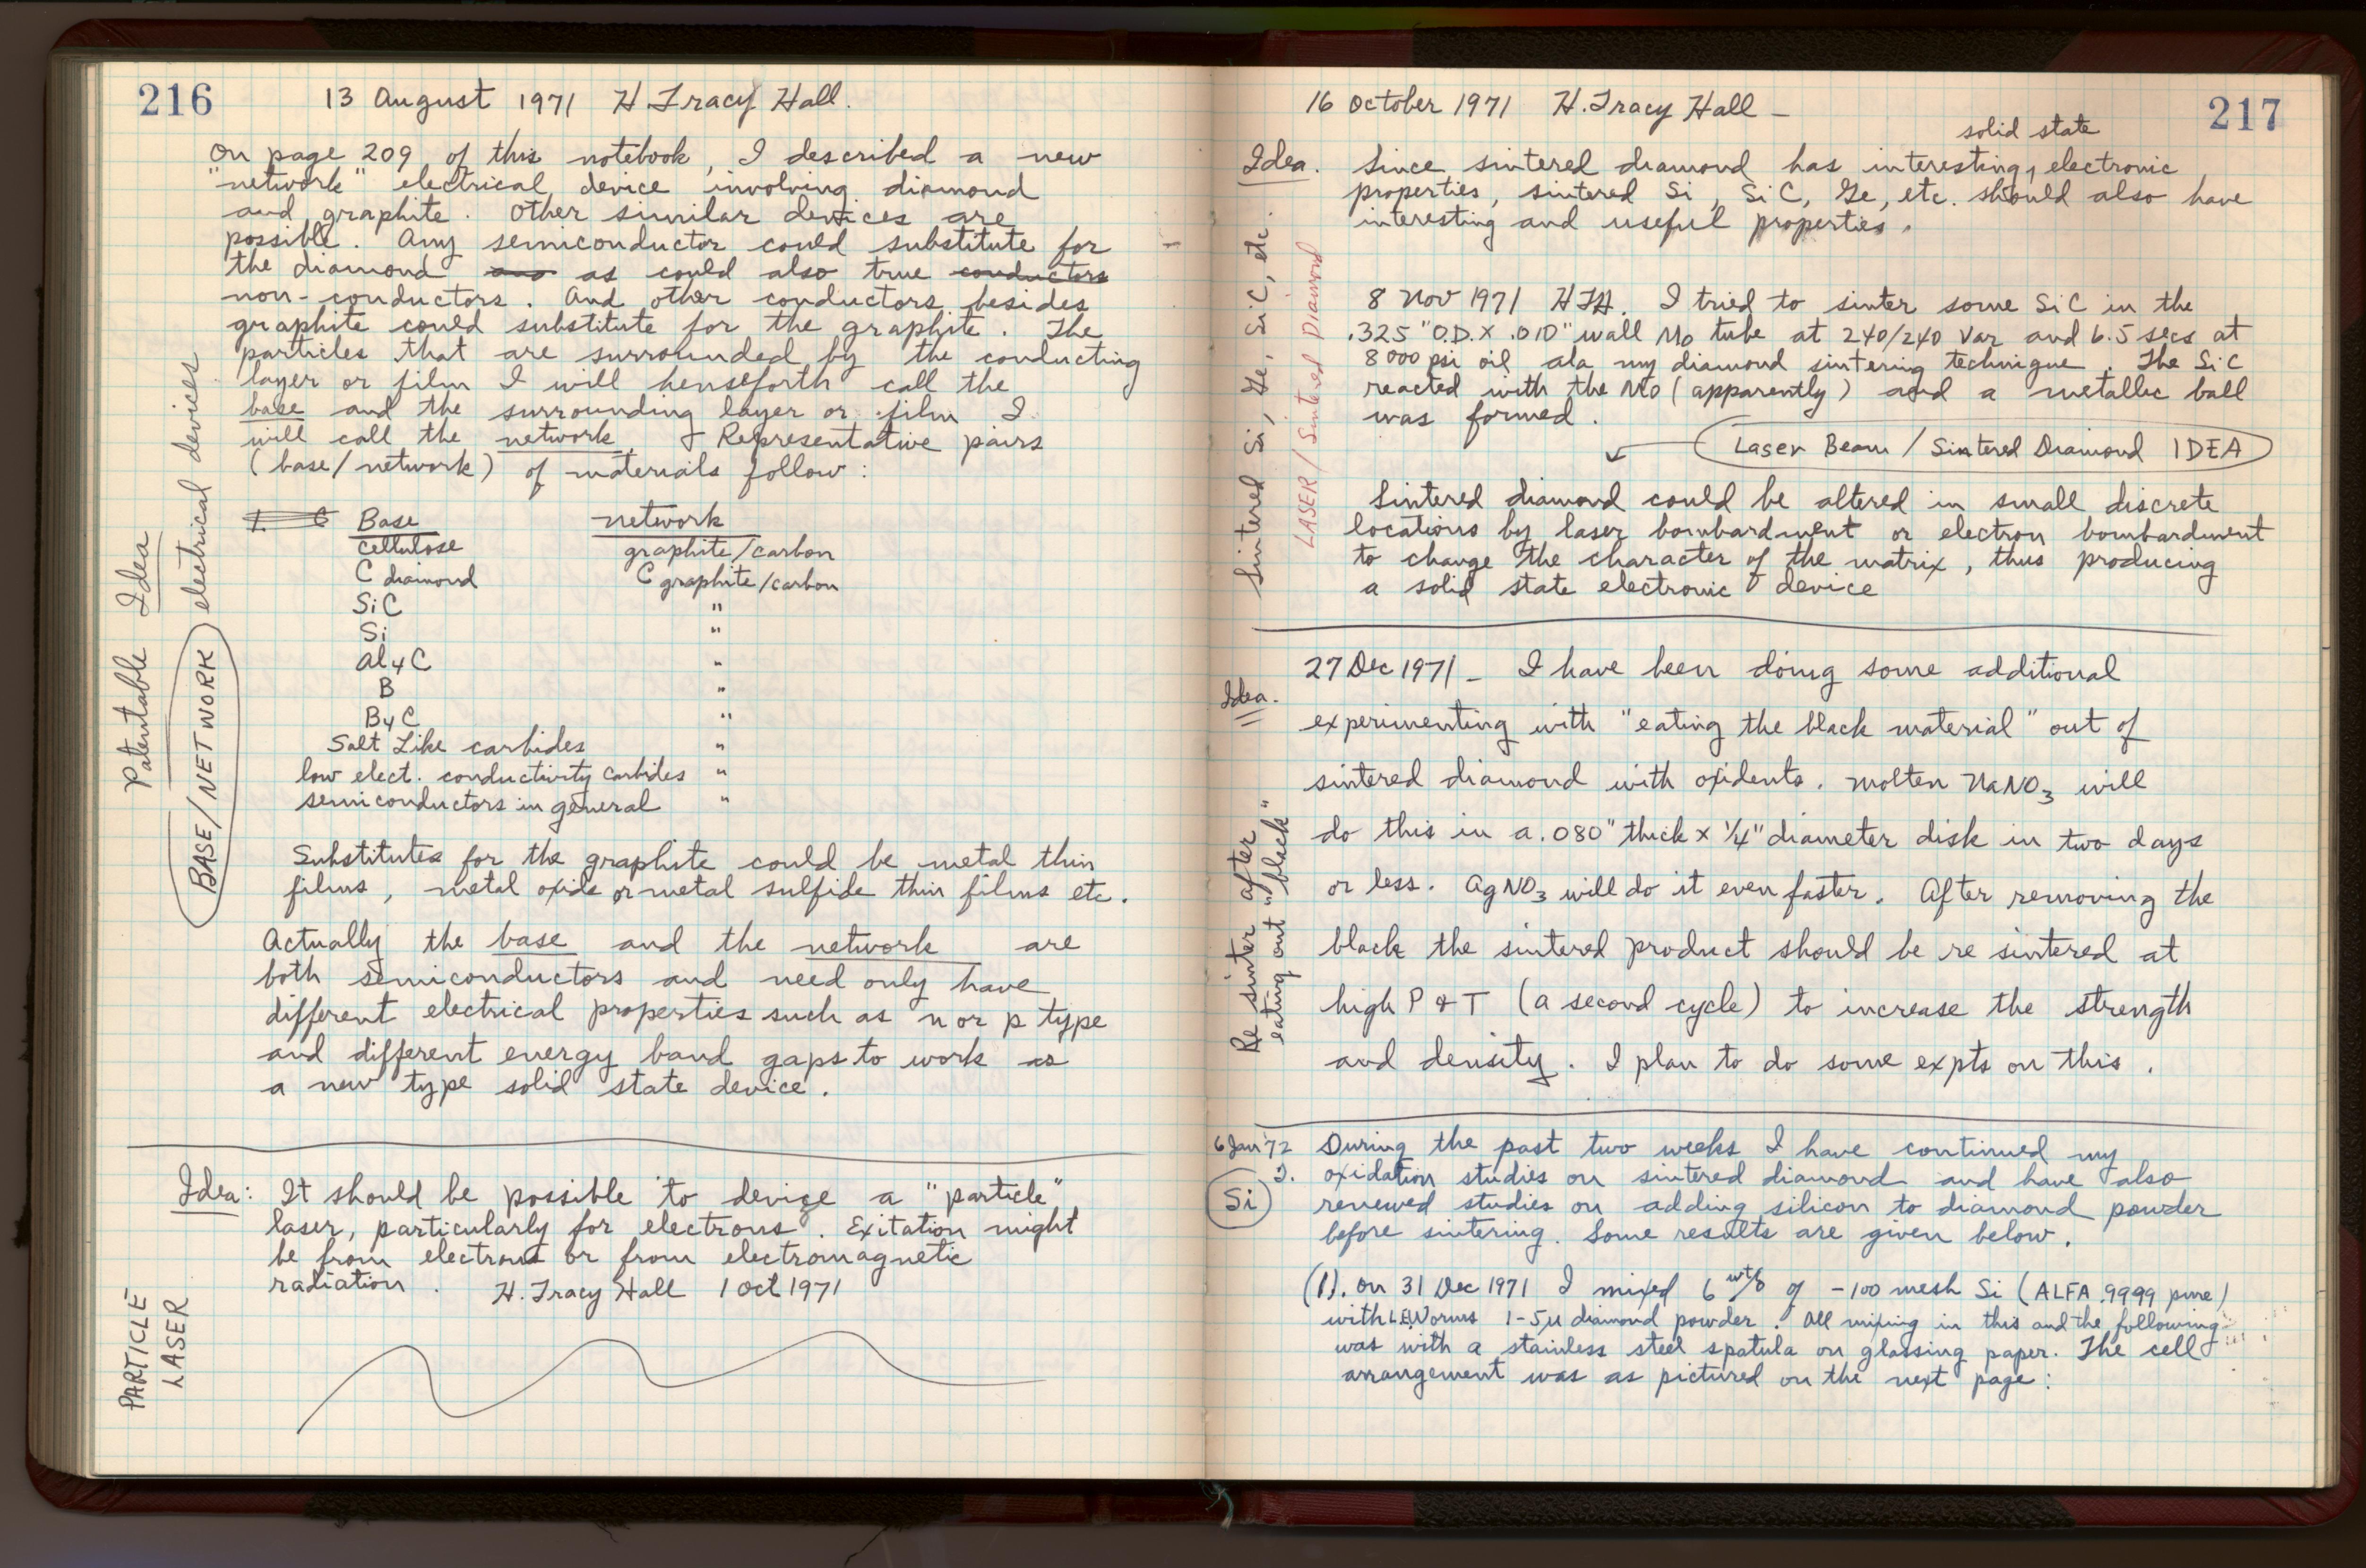 216
13 August 1971 H Tracy Hall.
On page 209 of this notebook, I described a new
"network" electrical device involving diamond
and graphite. Other similar devices are
possible. Any semiconductor could substitute for
the diamond as could also true conductors
non-conductors. And other conductors besides
graphite could substitute for the graphite. The
particles that are surrounded by the conducting
layer or film I will henseforth call the
base and the surrounding layer or film I
will call the network. Representative pairs
(base/network) of materials follow:
Base network
cellulose graphite/carbon
C diamond C graphite/carbon
SiC "
Si "
Al4C "
B "
B4C "
Salt Like carbides "
low elect. conductivity carbides "
semiconductors in general "
Substitutes for the graphite could be metal thin
films, metal oxide or metal sulfide thin films etc.
Actually the base and the network are
both semiconductors and need only have
different electrical properties such as n or p type
and different energy band gaps to work as
a new type solid state device.
Patentable Idea
BASE/NETWORK electrical devices
Idea: It should be possible to devise a "particle"
laser, particularly for electrons. Exitation might
be from electrons or from electromagnetic
radiation. H. Tracy Hall 1 Oct 1971
PARTICLE
LASER
217
16 October 1971 H. Tracy Hall -
solid state
Idea. Since sintered diamond has interesting, electronic
properties, sintered Si, SiC, Ge, etc. should also have
interesting and useful properties.
8 Nov 1971 HTH. I tried to sinter some SiC in the
.325" O.D. X .010" wall Mo tube at 240/240 Var and 6.5 secs at
8000 psi oil ala my diamond sintering technique. The SiC
reacted with the Mo (apparently) and a metallic ball
was formed.
Laser Beam / Sintered Diamond IDEA
Sintered diamond could be altered in small discrete
locations by laser bombardment or electron bombardment
to change the character of the matrix, thus producing
a solid state electronic device
Sintered Si, Ge, SiC, etc.
LASER/Sintered Diamond
27 Dec 1971 - I have been doing some additional
Idea.
experimenting with "eating the black material" out of
sintered diamond with oxidents. Molten NaNO3 will
do this in a .080" thick x 1/4" diameter disk in two days
or less. AgNO3 will do it even faster. After removing the
black the sintered product should be re sintered at
high P & T (a second cycle) to increase the strength
and density. I plan to do some expts on this.
Re sinter after
eating out "black"
6 Jan '72 During the past two weeks I have continued my
oxidation studies on sintered diamond and have also
Si renewed studies on adding silicon to diamond powder
before sintering. Some results are given below.
(1). On 31 Dec 1971 I mixed 6 wt% of -100 mesh Si (ALFA .9999 pure)
with L.E. Worms 1-5μ diamond powder. All mixing in this and the following
was with a stainless steel spatula on glassing paper. The cell
arrangement was as pictured on the next page: